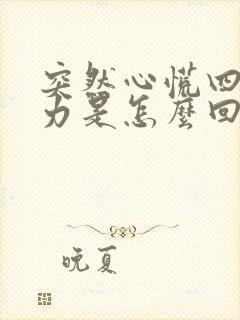 突然心慌四
力是怎麼回
晚夏